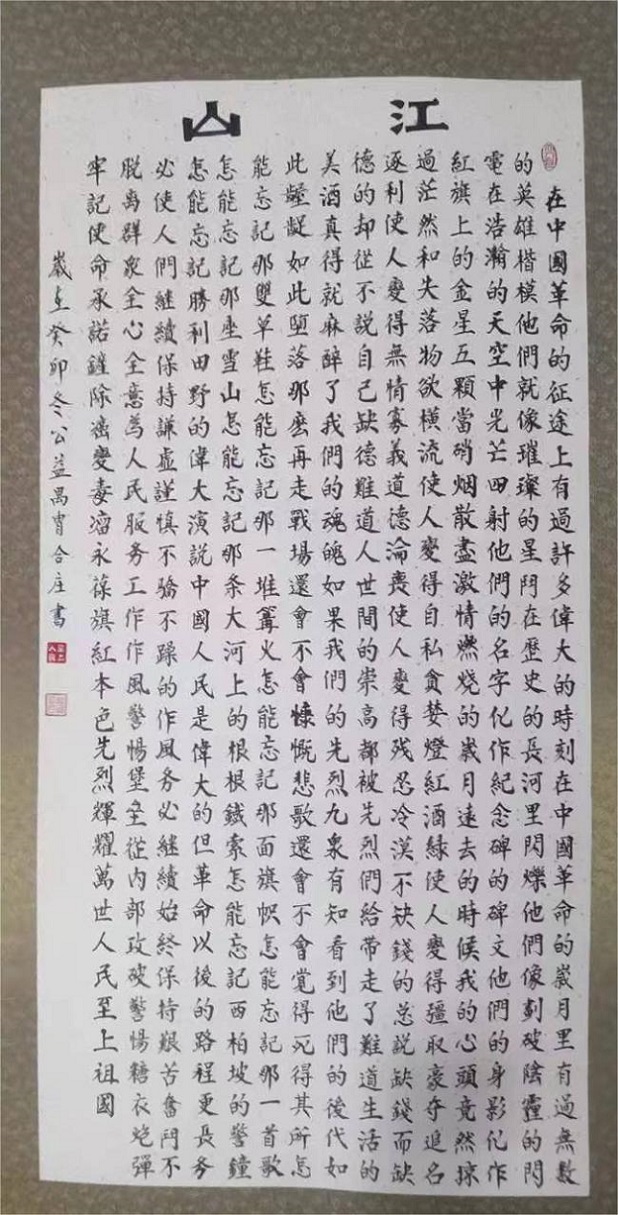 江山
在中國革命的征途上有過許多偉大的時刻在中國革命的歲月里有過無數
的英雄楷模他們就像璀璨的星鬥在歷史的長河里閃爍他們像劃破陰霾的閃
電在浩瀚的天空中光芒四射他們的名字化作紀念碑的碑文他們的身影化作
紅旗上的金星五顆當硝烟散盡激情燃燒的歲月遠去的時候我的心頭竟然掠
過茫然和失落物欲橫流使人變得自私貪婪燈紅酒緑使人變得疆取豪夺追名
逐利使人變得無情寡義道德淪喪使人變得残忍冷漠不缺錢的总説缺錢而缺
德的却從不説自己缺德難道人世間的崇高都被先烈們給带走了難道生活的
美酒真得就麻醉了我們的魂魄如果我們的先烈九泉有知看到他們的後代如
此齷齪如此墮落那麽再走戰場還會不會慷慨悲歌還會不會覚得死得其所怎
能忘記那雙草鞋怎能忘記那一堆篝火怎能忘記那面旗帜怎能忘記那一首歌
怎能忘記那座雪山怎能忘記那条大河上的根根鐵索怎能忘記西柏坡的警鐘
怎能忘記勝利田野的偉大演説中國人民是偉大的但革命以後的路程更長务
必使人們継續保持謙虚謹慎不驕不躁的作風务必継續始終保持艱苦奮鬥不
脱离群衆全心全意為人民服务工作作風警惕堡垒從内部攻破警惕糖衣炮彈
牢記使命承諾鏟除癌變毒瘤永葆旗紅本色先烈輝耀萬世人民至上祖國
歲在癸卯冬公益禺胄合庄書